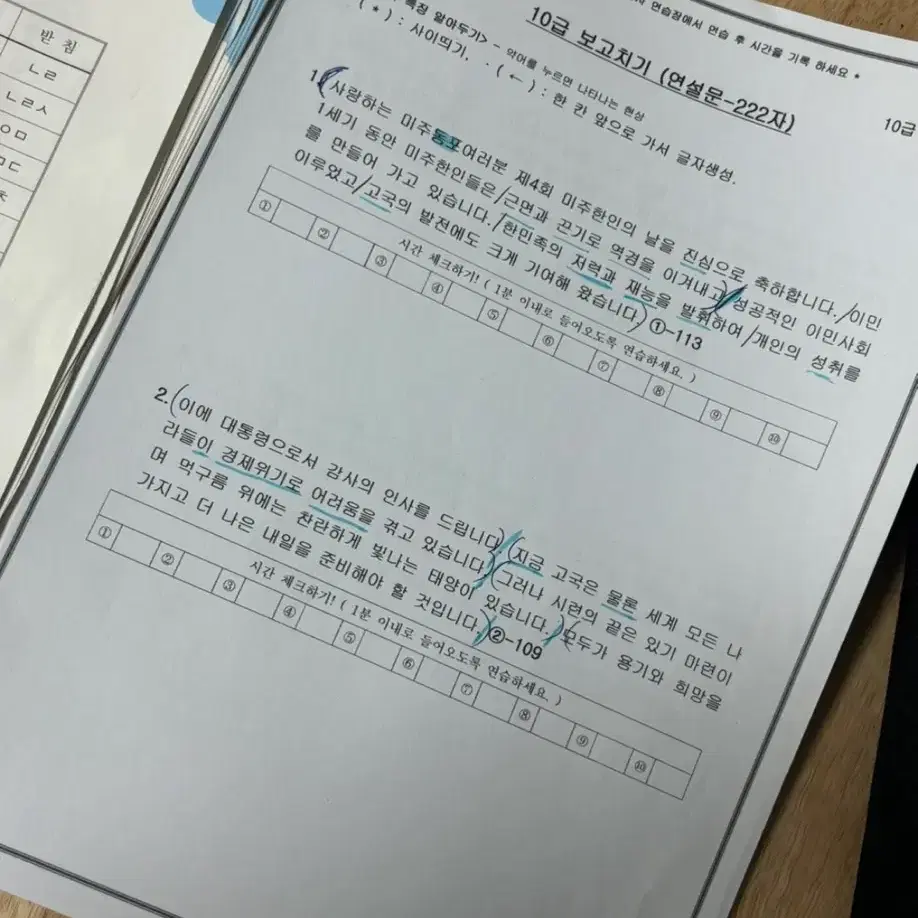 받 침
ㄴㄹ
ㄴㄹㅅ
ㅇㅁ
ㅁㄷ
연습장에서 연습 후 시간을 기록 하세요 *
10급 보고치기 (연설문-222자)
10급
특징 알아두기> - 약어를 누르면 나타나는 현상
( * ) : 사이띄기, ( ← ) : 한 칸 앞으로 가서 글자생성.
1. (사랑하는 미주동포여러분 제4회 미주한인의 날을 진심으로 축하합니다./이민
1세기 동안 미주한인들은/근면과 끈기로 역경을 이겨내고/성공적인 이민사회
를 만들어 가고 있습니다./한민족의 저력과 재능을 발휘하여/개인의 성취를
이루었고/고국의 발전에도 크게 기여해 왔습니다.)①-113
시간 체크하기! ( 1분 이내로 들어오도록 연습하세요. )
① ② ③ ④ ⑤ ⑥ ⑦ ⑧ ⑨ ⑩
2. (이에 대통령으로서 감사의 인사를 드립니다.)(지금 고국은 물론 세계 모든 나
라들이 경제위기로 어려움을 겪고 있습니다.)(그러나 시련의 끝은 있기 마련이
며 먹구름 위에는 찬란하게 빛나는 태양이 있습니다.)(모두가 용기와 희망을
가지고 더 나은 내일을 준비해야 할 것입니다.)②-109
시간 체크하기! ( 1분 이내로 들어오도록 연습하세요. )
① ② ③ ④ ⑤ ⑥ ⑦ ⑧ ⑨ ⑩